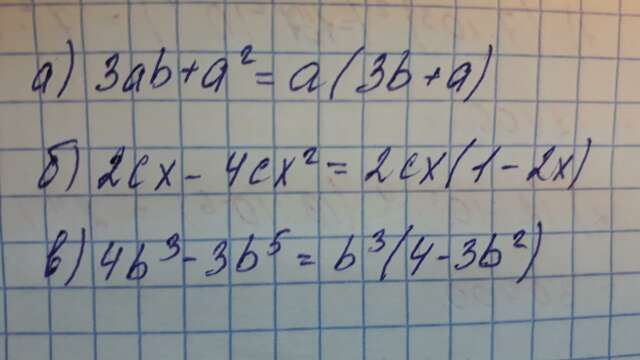 а) 3ab+a²= a(3b+a)
б) 2cx - 4cx² = 2cx(1-2x)
в) 4b³-3b⁵ = b³(4-3b²)